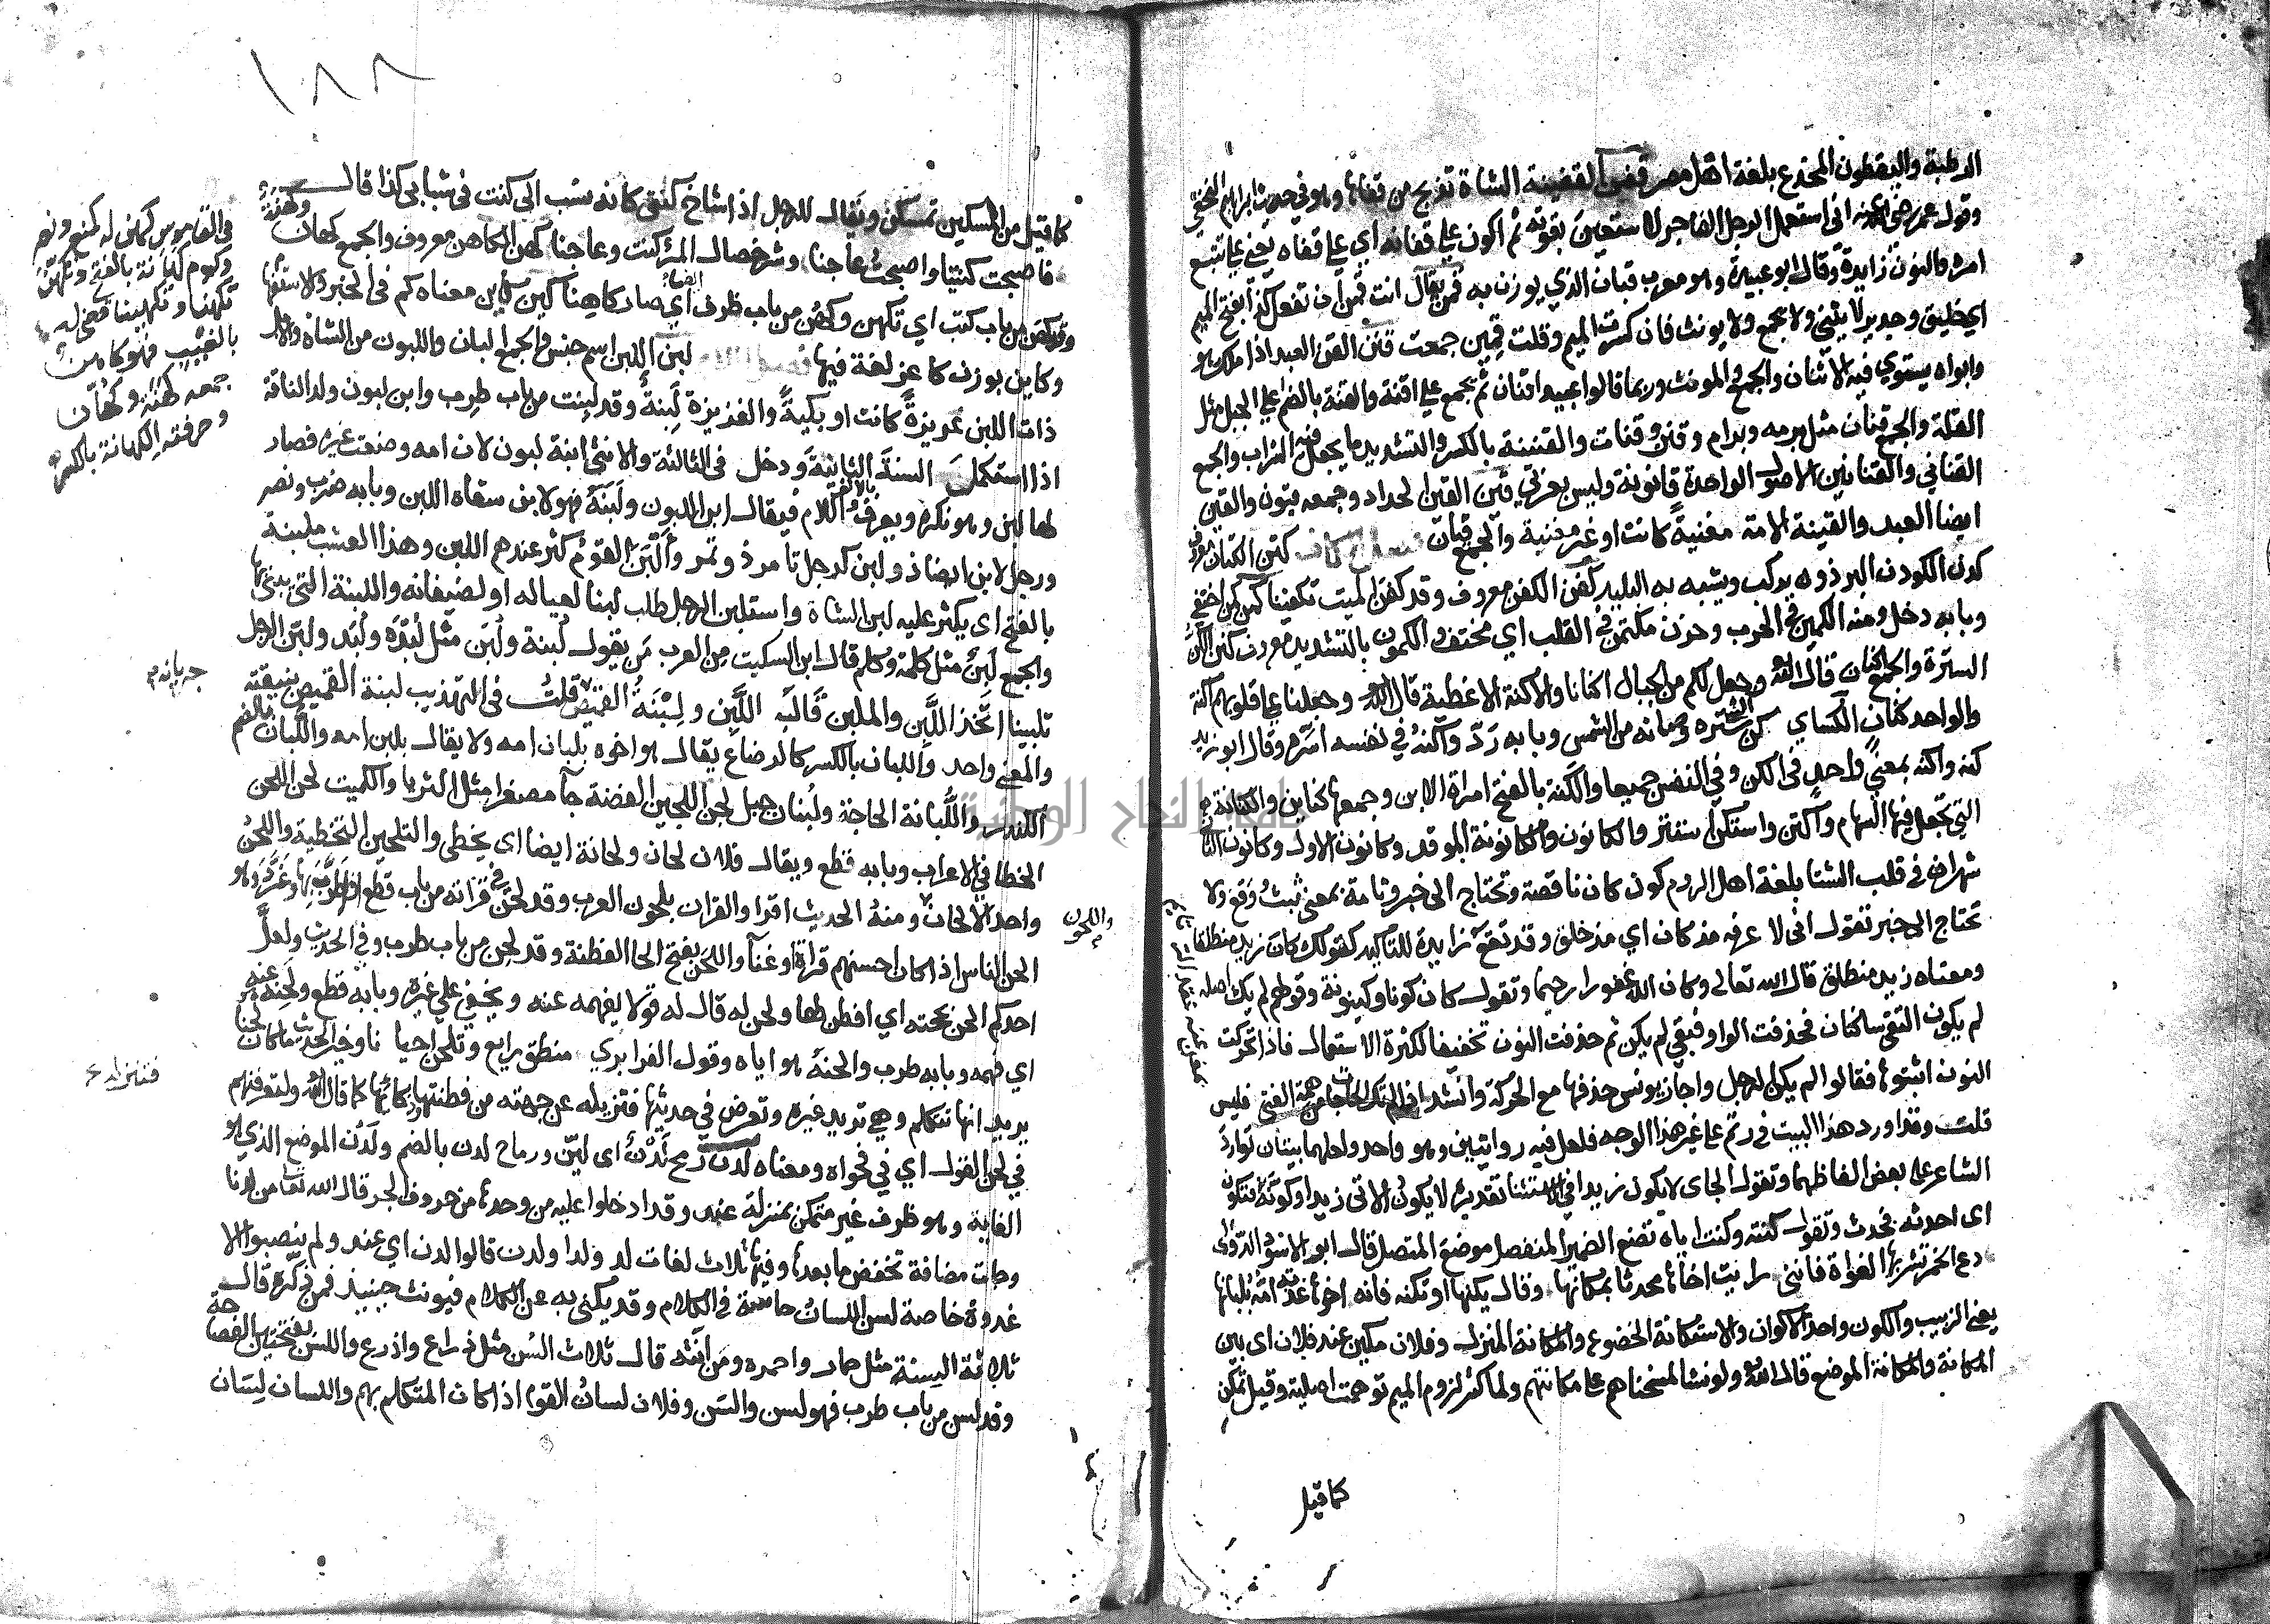 الرطبة واليقطون المخدع بلغة اهل مصر قفن القفينة الشاة تذبح من قفاها وهو في حديث ابراهيم النخعي
وقول عمر رضي الله عنه اني استعمل الرجل الفاجر لاستعين بقوته ثم اكون على قفانه اي على قفاه يعني على تتبع
امره والنون زايدة وقال ابو عبيدة وهو معرب قبان الذي يوزن به قمن يقال انت قمن ان تفعل كذا بفتح الميم
اي خليق وجدير لا يثنى ولا يجمع ولا يونث فان كسرت الميم وقلت قمين جمعت قنن القن العبد اذا ملك هو
وابواه يستوي فيه الاثنان والجمع والمونث وربما قالوا عبيد اقنان ثم يجمع على اقنة والقنة بالضم اعلى الجبل مثل
القلة والجمع قنان مثل برمه وبرام وقنن وقنات والقنينة بالكسر والتشديد ما يجعل فيه الشراب والجمع
القناني والقنانين الاصول الواحدة قانونة وليس بعربي قين القين الحداد وجمعه قيون والقين
ايضا العبد والقينة الامة مغنية كانت او غير مغنية والجمع قيان فصل الكاف كتن الكتان معروف
كدن الكودن البرذون يركب ويشبه به البليد كفن الكفن معروف وقد كفن الميت تكفينا كمن كمن اختفى
وبابه دخل ومنه الكمين في الحرب وحزن مكتمن في القلب اي مختف والكمون بالتشديد معروف كنن الكن
السترة والجمع اكنان قال الله وجعل لكم من الجبال اكنانا والاكنة الاغطية قال الله وجعلنا على قلوبهم اكنة
والواحد كنان الكساي كن الشي ستره وصانه من الشمس وبابه رد واكنه في نفسه اسره وقال ابو زيد
كنه واكنه بمعنى واحد في الكن وفي النفس جميعا والكنة بالفتح امراة الابن وجمعها كناين والكنانة
التي تجعل فيها السهام واكتن واستكن استتر والكانون والكانونة الموقد وكانون الاول وكانون الثا
شهران في قلب الشتا بلغة اهل الروم كون كان ناقصة وتحتاج الى خبر وتامة بمعنى ثبت ووقع ولا
تحتاج الى خبر تقول اني لا عرفه مذ كان اي مذ خلق وقد تقع زايدة للتاكيد كقولك كان زيد منطلقا
ومعناه زيد منطلق قال الله تعالى وكان الله غفورا رحيما وتقول كان كونا وكينونة وقولهم لم يك اصله
لم يكون التقى ساكنان فحذفت الواو فبقي لم يكن ثم حذفت النون تخفيفا لكثرة الاستعمال فاذا تحركت
النون اثبتوها فقالوا لم يكن الرجل واجاز يونس حذفها مع الحركة وانشد اذا لم تك الحاجات من همة الفتى فليس
قلت وقد اورد هذا البيت في رتم على غير هذا الوجه فلعل فيه روايتين وهو واحد ولعلهما بيتان توارد
الشاعر على بعض الفاظهما وتقول الجاى لا يكون زيدا في الاستثنا تقديره لا يكون الاتي زيدا وكونه فتكون
اى احدثه فحدث وتقول كنته وكنت اياه تضع الضمير المنفصل موضع المتصل قال ابو الاسود الدولى
دع الخمر تشربها الغواة فانني رايت اخاها محدثا بمكانها وقال يكنها او تكنه فانه اخوها غذته امه بلبانها
يعنى الزبيب والكون واحد الاكوان والاستكانة الخضوع والمكانة المنزلة وفلان مكين عند فلان اى بين
المكانة والمكانة الموضع قال الله ولو نشا لمسخناهم على مكانتهم ولما كثر لزوم الميم توهمت اصلية وقيل تمكن
كما قيل
١٨٨
كما قيل من المسكين تمسكن ويقال للرجل اذا شاخ كنتي كانه نسب الى كنت في شبابي كذا قال
فاصبحت كنتيا واصبحت عاجنا وشر خصال المر كنت وعاجنا كهن الكاهن معروف والجمع كهان وكهنة
وقد كهن من باب كتب اي تكهن وكهن من باب ظرف ايضا اي صار كاهنا كين كاين معناه كم في الخبر والاستفها
وكاين بوزن كاعن لغة فيها فصل اللام لبن اللبن اسم جنس والجمع البان واللبون من الشاة والابل
ذات اللبن غزيرة كانت او بكية والغزيزة لبنة وقد لبنت من باب طرب وابن لبون ولد الناقة
اذا استكمل السنة الثانية ودخل في الثالثة والانثى ابنة لبون لان امه وضعت غيره فصار
لها لبن وهو نكره ويعرف بالالف واللام فيقال ابن اللبون ولبنه فهو لابن سقاه اللبن وبابه ضرب ونصر
ورجل لابن ايضا ذو لبن كرجل تامر ذو تمر والبن القوم كثر عندهم اللبن وهذا العشب ملبنة
بالفتح اى يكثر عليه لبن الشاة واستلبن الرجل طلب لبنا لعياله او لضيفانه واللبنة التي يبنى بها
والجمع لبن مثل كلمة وكلم قال ابن السكيت من العرب من يقول لبنة ولبن مثل لبدة ولبد ولبن الرجل
تلبينا اتخذ اللبن والملبن قالب اللبن ولبنة القميص قلت في التهذيب لبنة القميص بنيقته
والمعنى واحد واللبان بالكسر كالرضاع يقال هو اخوه بلبان امه ولا يقال بلبن امه واللبان بالضم
الكندر واللبانة الحاجة ولبنان جبل لجن اللجين الفضة جا مصغرا مثل الثريا والكميت لحن اللحن
الخطا في الاعراب وبابه قطع ويقال فلان لحان ولحانة ايضا اى يخطى والتلحين التخطية واللحن
واحد الالحان ومنه الحديث اقرا والقران بلحون العرب وقد لحن في قراته من باب قطع اذا طرب بها وغرد وهو
الحن الناس اذا كان احسنهم قراة او غنا واللحن بفتح الحا الفطنة وقد لحن من باب طرب وفي الحديث ولعل
احدكم الحن بحجته اي افطن لها ولحن له قال له قولا يفهمه عنه ويخفى على غيره وبابه قطع ولحنه عنه
اي فهمه وبابه طرب والحنه هو اياه وقول الفزاري منطق رايع وتلحن احيا نا وخير الحديث ما كان لحنا
يريد انها تتكلم وهي تريد غيره وتعرض في حديثها فتزيله عن جهته من فطنتها وذكائها كما قال الله ولتعرفنهم
في لحن القول اي في فحواه ومعناه لدن رمح لدن اى لين ورماح لدن بالضم ولدن الموضع الذي هو
الغاية وهو ظرف غير متمكن بمنزلة عند وقد ادخلوا عليه من وحدها من حروف الجر قال الله تعالى من لدنا
وجات مضافة تخفض ما بعدها وفيها ثلاث لغات لدن ولدا ولدن قالوا لدن اي عند ولم ينصبوا الا
غدوة خاصة لسن اللسان جارحة في الكلام وقد يكنى به عن الكلام فيونث حينيذ فمن ذكره قال
ثلاثة السنة مثل حمار واحمره ومن انثه قال ثلاث السن مثل ذراع واذرع واللسن بفتحتين الفصاحة
وقد لسن من باب طرب فهو لسن والسن وفلان لسان القوم اذا كان المتكلم بهم واللسان لسان
في القاموس كهن له كمنع ونصر
وكرم كهانة بالفتح وتكهن
تكهنا وتكهينا قضى له
بالغيب فهو كاهن
جمعه كهنة وكهان
وحرفته الكهانة بالكسر
جربانه
واللحون
جامعة النجاح الوطنية